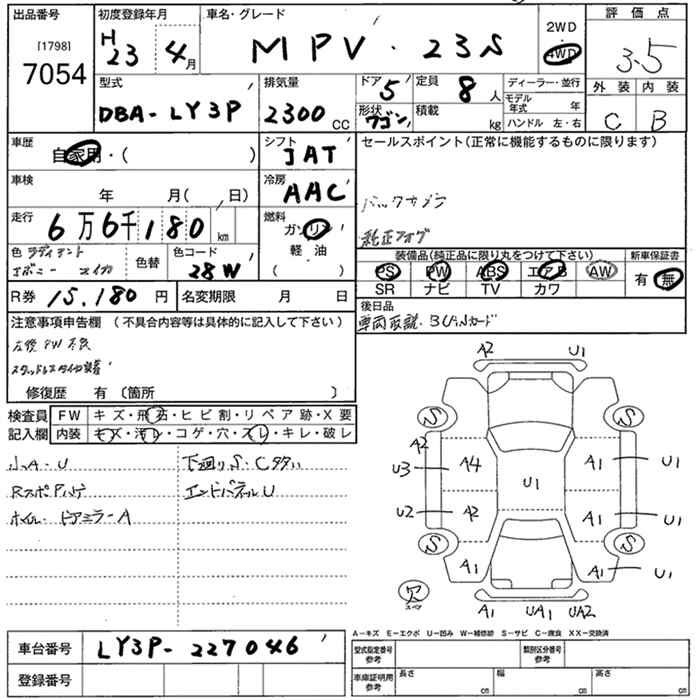 出品番号
[1798]
7054
初度登録年月
H 23 4月
車名・グレード
MPV・23S
2WD
4WD
評価点
3.5
型式
DBA-LY3P
排気量
2300cc
ドア
5
形状
ワゴン
定員
8人
積載
kg
ディーラー・並行
モデル年式 年
ハンドル 左・右
外装
C
内装
B
車歴
自家用・( )
シフト
IAT
セールスポイント(正常に機能するものに限ります)
バックカメラ
純正フォグ
車検
年 月( 日)
冷房
AAC
走行
6万6千180km
燃料
ガソリン
軽油
( )
色
ラディアント
エボニー マイカ
色替
色コード
28W
装備品(純正品に限り丸をつけて下さい)
PS PW ABS エアB AW
SR ナビ TV カワ
新車保証書
有・無
R券 15.180円
名変期限 月 日
後日品
車両取説・BUiNカード
注意事項申告欄(不具合内容等は具体的に記入して下さい)
左後PW不良
スタッドレスタイヤ装着
修復歴 有(箇所 )
検査員
記入欄
FW キズ・飛石・ヒビ割・リペア跡・X要
内装 キズ・汚レ・コゲ・穴・スレ・キレ・破レ
小A・U
RスポAハゲ
ホイル・ドアミラーA
下廻りS・Cタタい
エンドパネルU
A2 U1
S S
A2
U3 A4 U1 A1 U1
U2 A2 A1 U1
S S
A1 A1 U1
欠
スペア
A1 UA1 UA2
A-キズ E-エクボ U-凹み W-補修跡 S-サビ C-腐食 XX-交換済
車台番号
LY3P-227046
登録番号
型式指定番号
参考
類別区分番号
参考
車庫証明用
参考
長さ cm
幅 cm
高さ cm